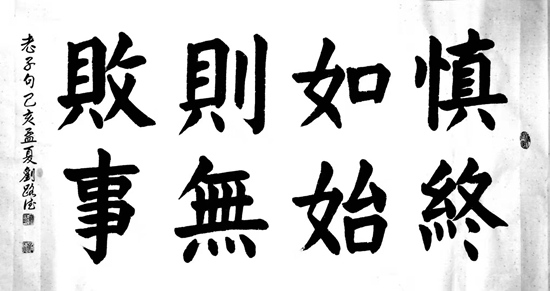 慎終
如始
則無
敗事
老子句乙亥孟夏劉路